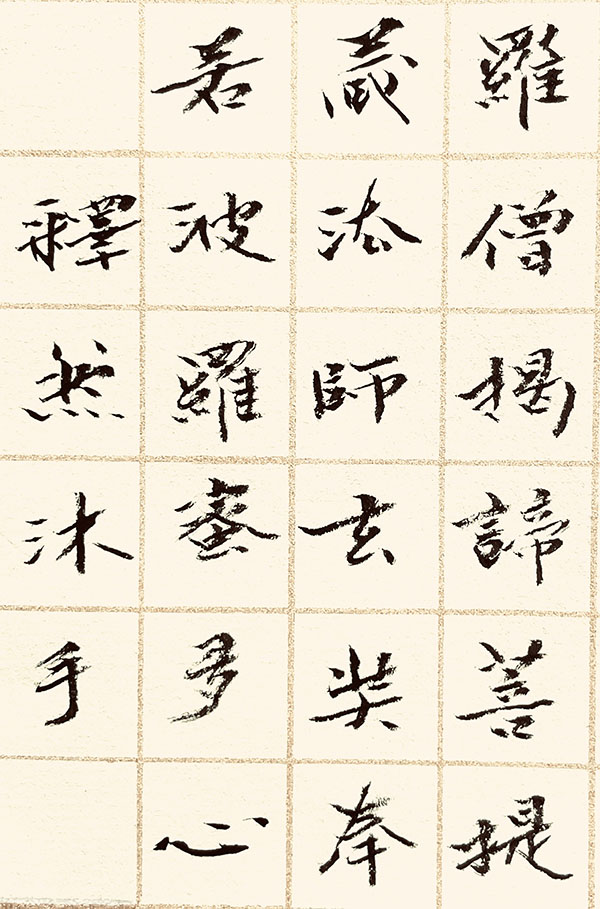 羅僧揭諦菩提
藏法師玄奘奉
若波羅蜜多心
釋然沐手